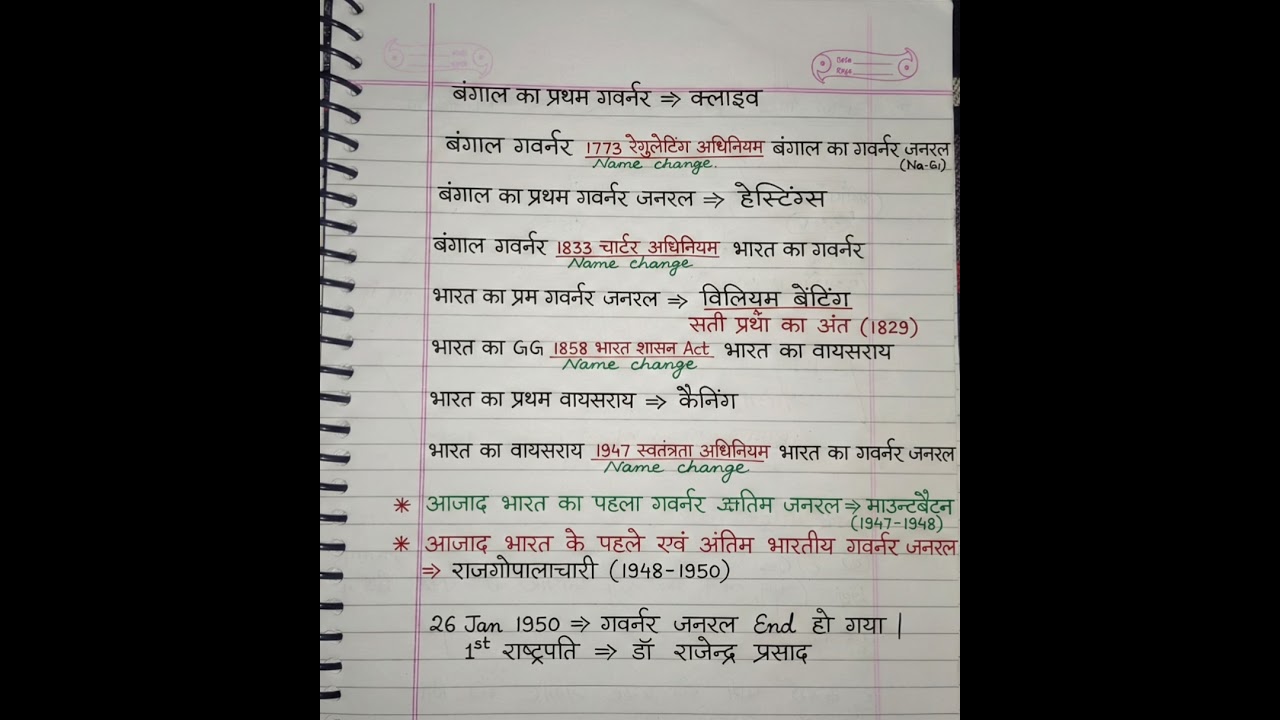 Date
Page
बंगाल का प्रथम गवर्नर ⇒ क्लाइव
बंगाल गवर्नर 1773 रेगुलेटिंग अधिनियम बंगाल का गवर्नर जनरल
Name change. (Na-G1)
बंगाल का प्रथम गवर्नर जनरल ⇒ हेस्टिंग्स
बंगाल गवर्नर 1833 चार्टर अधिनियम भारत का गवर्नर
Name change
भारत का प्रम गवर्नर जनरल ⇒ विलियम बेंटिंग
सती प्रर्था का अंत (1829)
भारत का GG 1858 भारत शासन Act भारत का वायसराय
Name change
भारत का प्रथम वायसराय ⇒ कैनिंग
भारत का वायसराय 1947 स्वतंत्रता अधिनियम भारत का गवर्नर जनरल
Name change
* आजाद भारत का पहला गवर्नर जनरल ⇒ माउन्टबैटन
(1947-1948)
* आजाद भारत के पहले एवं अंतिम भारतीय गवर्नर जनरल
⇒ राजगोपालाचारी (1948-1950)
26 Jan 1950 ⇒ गवर्नर जनरल End हो गया |
1st राष्ट्रपति ⇒ डॉ राजेन्द्र प्रसाद